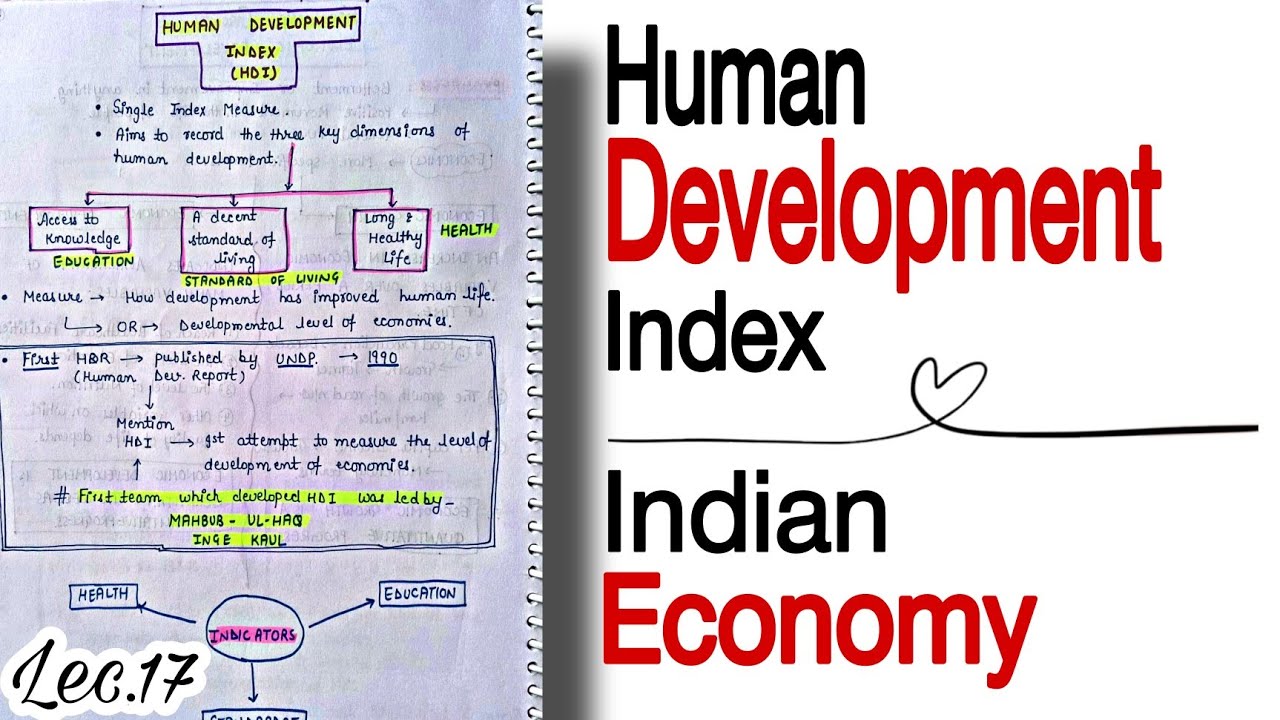 HUMAN DEVELOPMENT
INDEX
(HDI)
• Single Index Measure.
• Aims to record the three key dimensions of
human development.
Access to
Knowledge
EDUCATION
A decent
standard of
living
STANDARD OF LIVING
Long &
Healthy
Life
HEALTH
• Measure → How development has improved human life.
→ OR → Developmental level of economies.
• First HDR → published by UNDP. → 1990
(Human Dev. Report)
Mention
HDI → 1st attempt to measure the level of
development of economies.
# First team which developed HDI was led by-
MAHBUB - UL-HAQ
INGE KAUL
HEALTH
EDUCATION
INDICATORS
Lec.17
Human
Development
Index
Indian
Economy